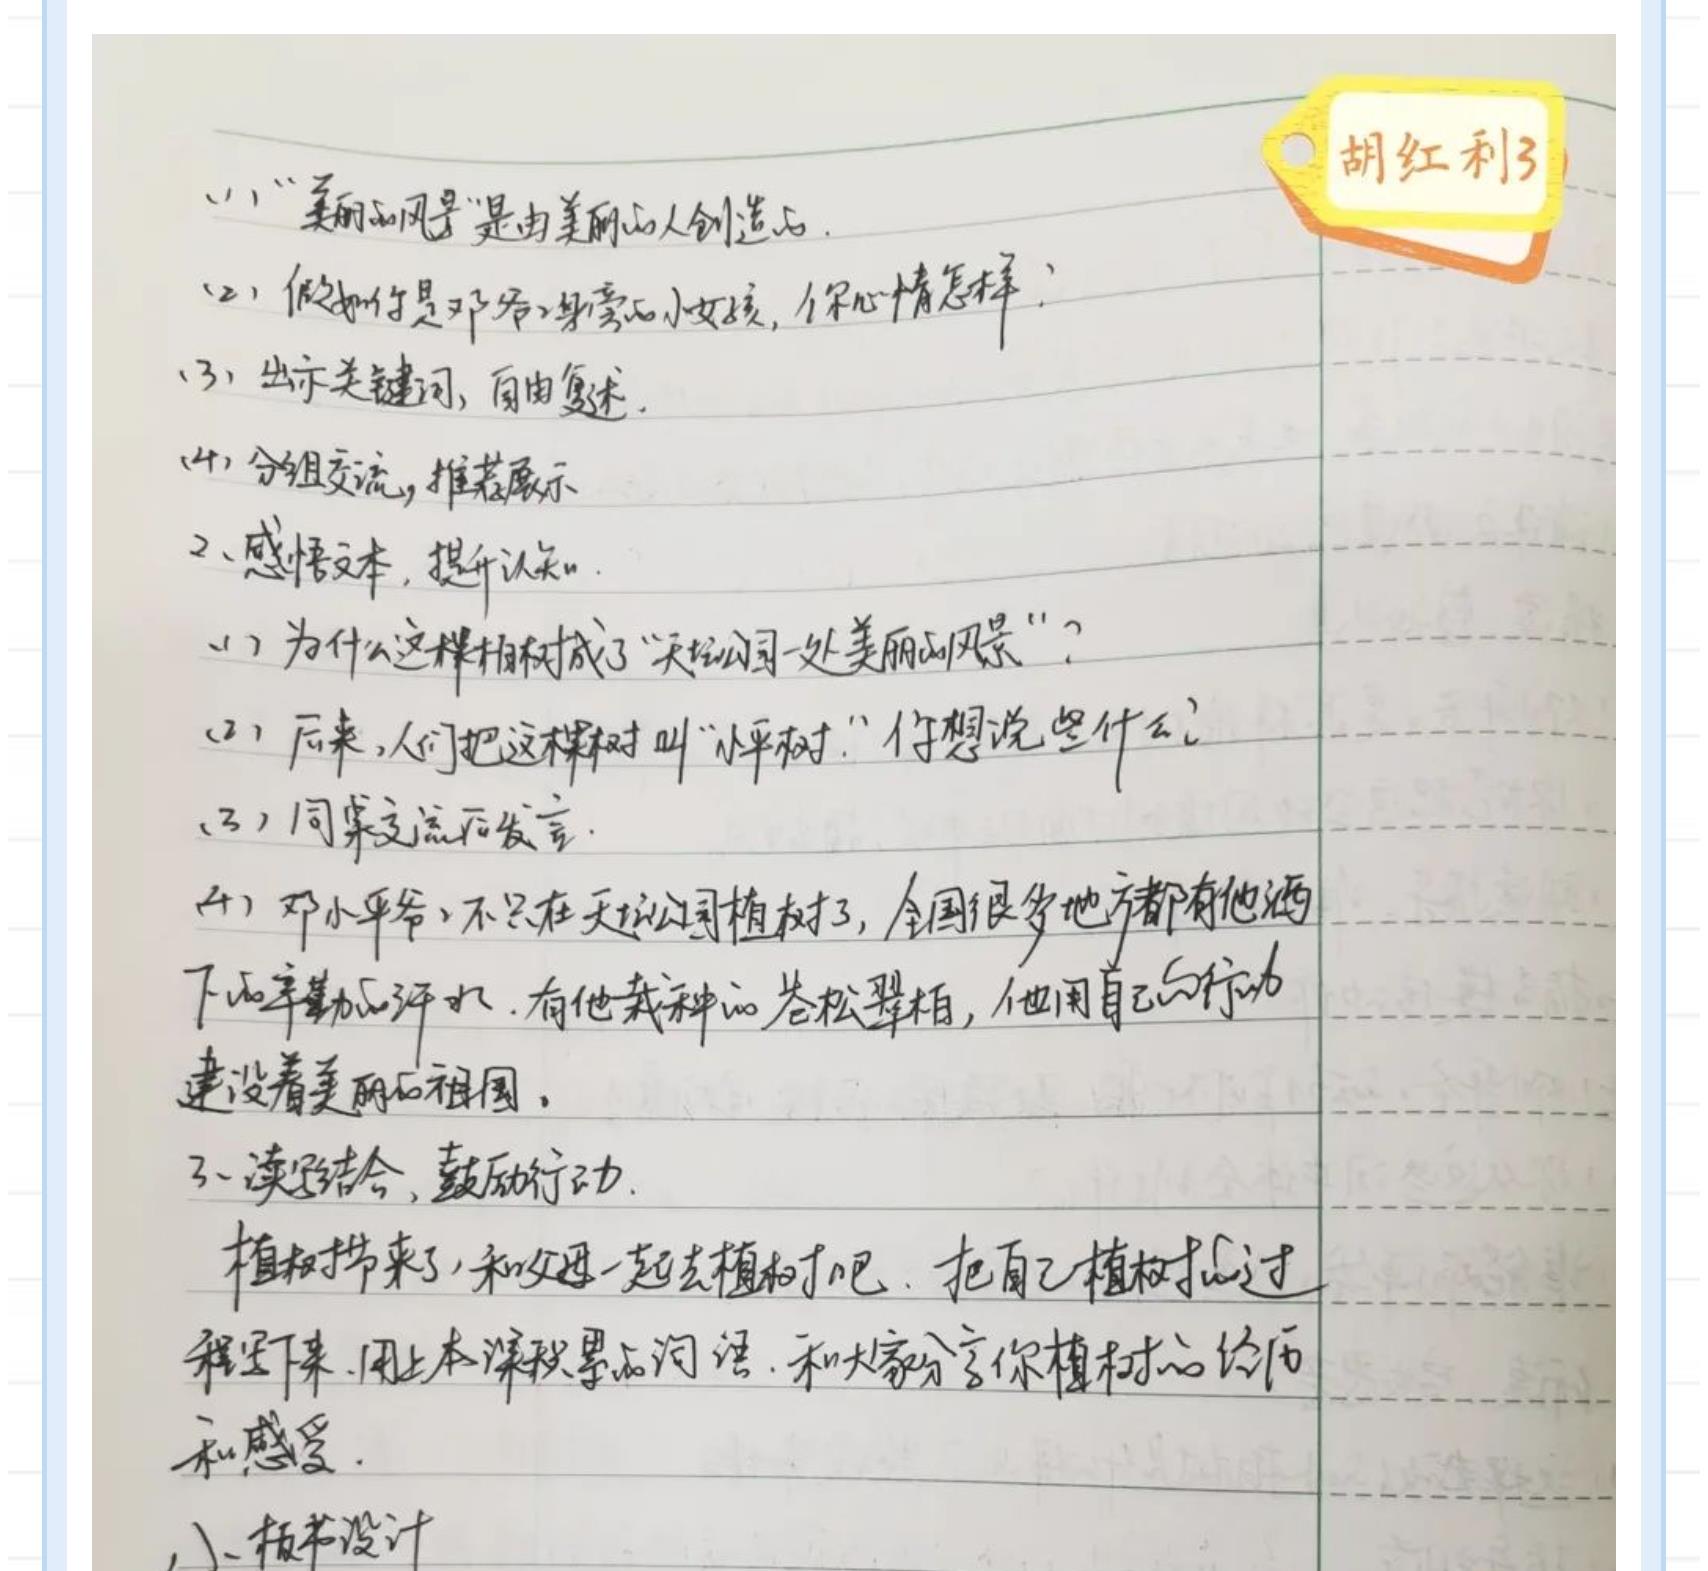 胡红利3
(1)“美丽的风景”是由美丽的人创造的.
(2) 假如你是邓爷爷身旁的小女孩, 你心情怎样?
(3) 出示关键词, 自由复述.
(4) 分组交流, 推荐展示
2、感悟文本, 提升认知.
(1) 为什么这棵柏树成了“天坛公园一处美丽的风景”?
(2) 后来, 人们把这棵树叫“小平树.”你想说些什么?
(3) 同桌交流后发言.
(4) 邓小平爷爷不只在天坛公园植树了, 全国很多地方都有他洒
下的辛勤的汗水. 有他栽种的苍松翠柏, 他用自己的行动
建设着美丽的祖国。
3、读写结合, 鼓励行动.
植树节来了, 和父母一起去植树吧. 把自己植树的过
程写下来. 用上本课积累的词语. 和大家分享你植树的经历
和感受.
八、板书设计